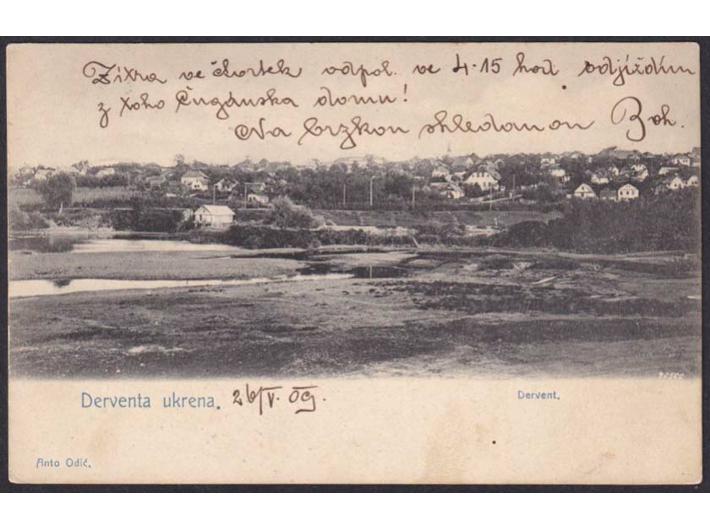 Zítra ve čtvrtek odpol. ve 4·15 hod odjíždím
z toho Cugánska domu!
Na brzkou shledanou
Derventa ukrena. 26/V. 09.
Dervent.
Anto Odić.